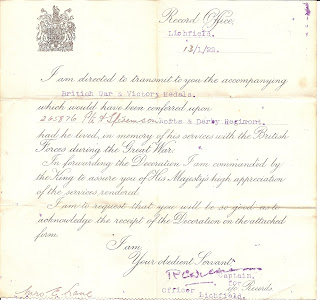 Record Office,
Lichfield.
13/1/22.
I am directed to transmit to you the accompanying
British War & Victory Medals.
which would have been conferred upon
Notts & Derby Regiment.
had he lived, in memory of his services with the British
Forces during the Great War.
In forwarding the Decoration I am commanded by
the King to assure you of His Majesty's high appreciation
of the services rendered.
I am to request that you will be so good as to
acknowledge the receipt of the Decoration on the attached
form.
I am,
Your obedient Servant
Captain,
for
Officer i/c Records
Lichfield.
Mrs. E. Lane